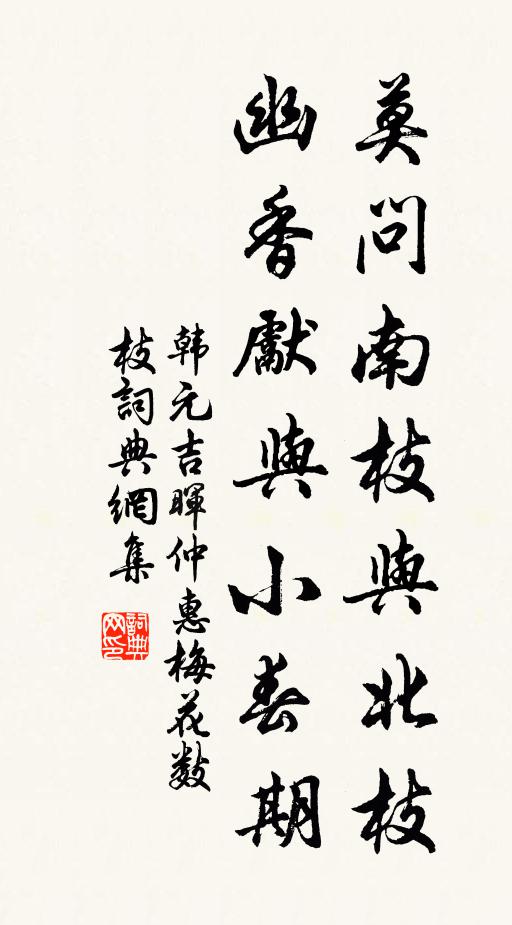 莫問南枝與北枝
幽香獻與小春期
韩元吉暉仲惠梅花数
枝詞典網集
詞典
网印